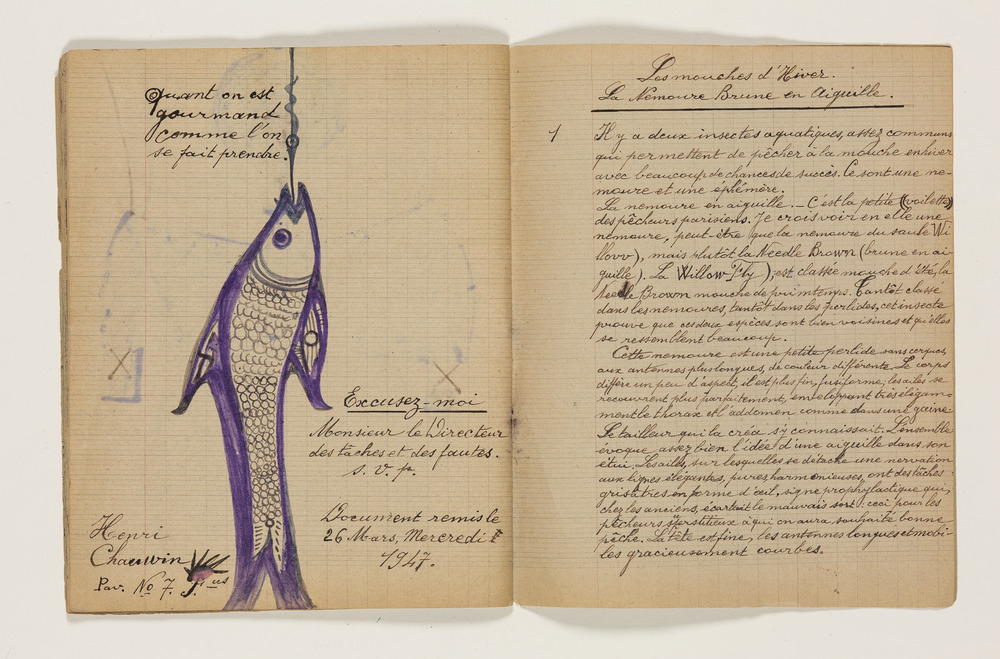 Quant on est
gourmand
comme l'on
se fait prendre.
Excusez-moi
Monsieur le Directeur
des tâches et des fautes.
s. v. p.
Document remis le
26 Mars, Mercredi
1947.
Henri
Chauvin
Pav. No 7.
Les mouches d'Hiver.
La Nemoure Brune en Aiguille.
1 Il y a deux insectes aquatiques, assez communs
qui permettent de pêcher à la mouche en hiver
avec beaucoup de chances de succès. Ce sont une ne-
moure et une éphémère.
La nemoure en aiguille. — C'est la petite "(voilette)"
des pêcheurs parisiens. Je crois voir en elle une
nemoure, peut-être que la nemoure du saule Wi
llovv), mais plutôt la Needle Brown (brune en ai-
guille). La Willow Fly), est classée mouche d'Été, la
Needle Brown mouche de printemps. Tantôt classé
dans les nemoures, tantôt dans les perlides, cet insecte
prouve que ces deux espèces sont bien voisines et qu'elles
se ressemblent beaucoup.
Cette nemoure est une petite perlide sans cerques,
aux antennes plus longues, de couleur différente. Le corps
diffère un peu d'aspect, il est plus fin, fusiforme, les ailes se
recouvrent plus parfaitement, enveloppant très élégam-
ment le thorax et l'addomen comme dans une gaine
Le tailleur qui la créa s'y connaissait. L'ensemble
evoque assez bien l'idée d'une aiguille dans son
étui. Les ailes, sur lesquelles se détache une nervation
aux lignes élégantes, pures harmonieuses, ont des tâches
grisâtres en forme d'œil, signe prophylactique qui,
chez les anciens, écartait le mauvais sort: ceci pour les
pêcheurs superstitieux à qui on aura souhaité bonne
pêche. La tête est fine, les antennes longues et mobi-
les gracieusement courbes.